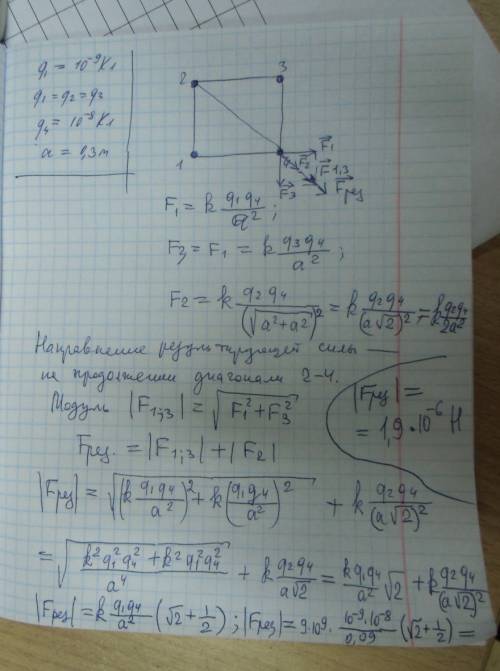 q₁ = 10⁻⁹ Кл
q₁ = q₂ = q₃
q₄ = 10⁻⁸ Кл
a = 0,3 м
2 3
1
F⃗₁
F⃗₂ F⃗1,3
F⃗₃ F⃗рез
F₁ = k q₁q₄/a² ;
F₃ = F₁ = k q₃q₄/a² ;
F₂ = k q₂q₄/(√(a²+a²))² = k q₂q₄/(a√2)² = k q₂q₄/2a²
Направление результирующей силы —
на продолжении диагонали 2-4.
Модуль |F₁;₃| = √(F₁² + F₃²)
Fрез. = |F₁;₃| + |F₂|
|Fрез| =
= 1,9·10⁻⁶ Н
|Fрез| = √((k q₁q₄/a²)² + k(q₁q₄/a²)²) + k q₂q₄/(a√2)²
= √((k²q₁²q₄² + k²q₁²q₄²)/a⁴) + k q₂q₄/a√2 = kq₁q₄/a² √2 + k q₂q₄/(a√2)²
|Fрез| = k q₁q₄/a² (√2 + 1/2) ; |Fрез| = 9·10⁹· 10⁻⁹·10⁻⁸/0,09 (√2 + 1/2) =